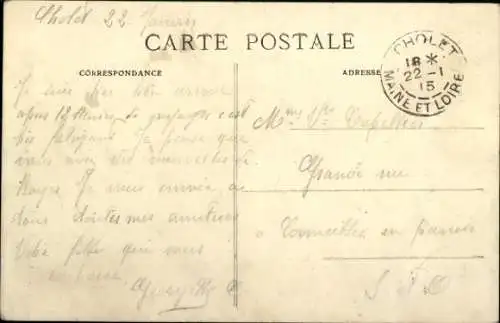 Cholet 22 Janvier
CARTE POSTALE
CORRESPONDANCE
ADRESSE
CHOLET
18 *
22 - 1
15
MAINE ET LOIRE
Je suis bien arrivé
après 12 heures de c'est
bien fatigant Je pense que
vous avez des nouvelles de
Je vous envoie
dans toutes mes amitiés
Votre fille qui vous
Mme Vve
Grande rue
à Cormeilles en Parisis
S & O